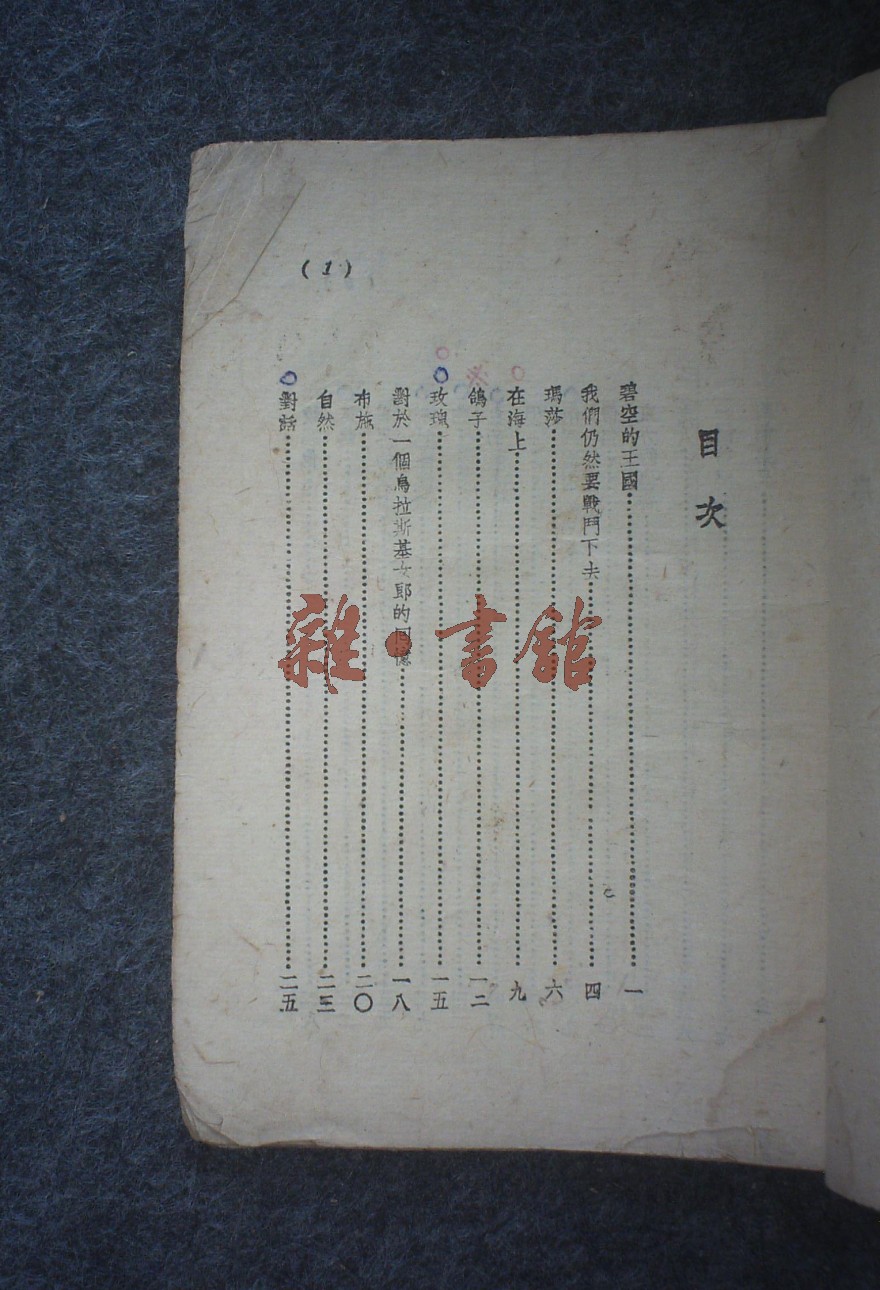 目次
碧空的王國……一
我們仍然要戰鬥下去……四
瑪莎……六
在海上……九
鴿子……一二
玫瑰……一五
對於一個烏拉斯基女郎的回憶……一八
布施……二〇
自然……二三
對話……二五
(1)
雜·書館